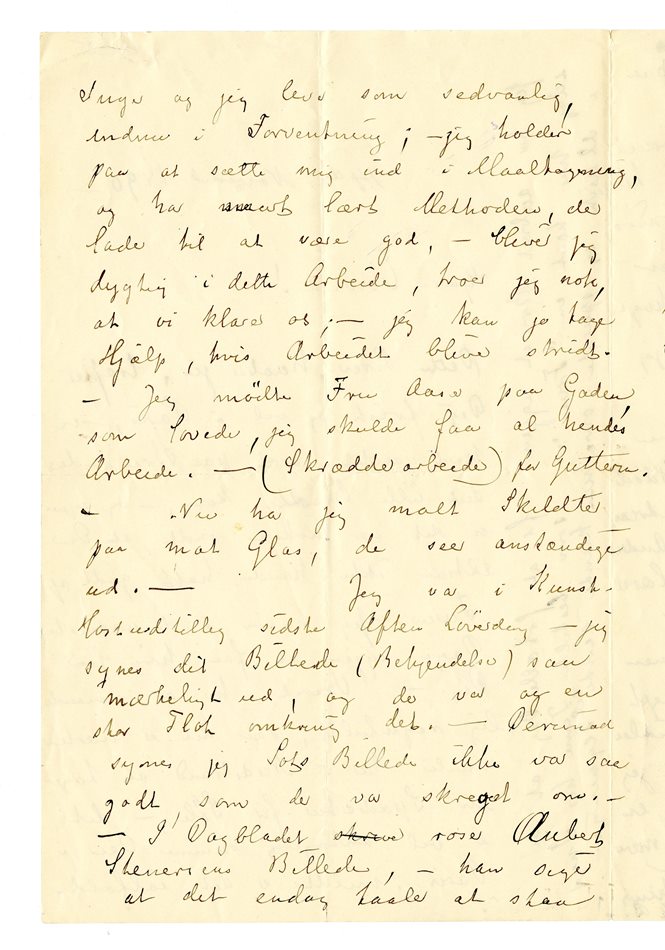 Inger og jeg leve som sedvanlig,
endnu i Forventning; – jeg holder
paa at sætte mig ind i Maaltagning,
og har snart lært Methoden, de
lade til at være god, – bliver jeg
dygtig i dette Arbeide, troer jeg nok,
at vi klarer os; – jeg kan jo tage
Hjælp, hvis Arbeidet blive stridt. –
– Jeg mødte Fru Aase paa Gaden,
som lovede, jeg skulde faa al hendes
Arbeide. – (Skrædderarbeide) for Guttern.
– Nu ha jeg malt Skildter
paa mat Glas, de seer anstændige
ud. – Jeg var i Kunst-
Høstudstilling sidste Aften Löverdag – jeg
synes dit Billede (Bekjendelse) saa
mærkeligt ud, og de var og en
stor Flok omkring det. – Derimod
synes jeg Lots Billede ikke var saa
godt, som de var skreget om. –
– I Dagbladet skrive rose Aubert
Stenersens Billede, – han sige
at det endog taale at staa